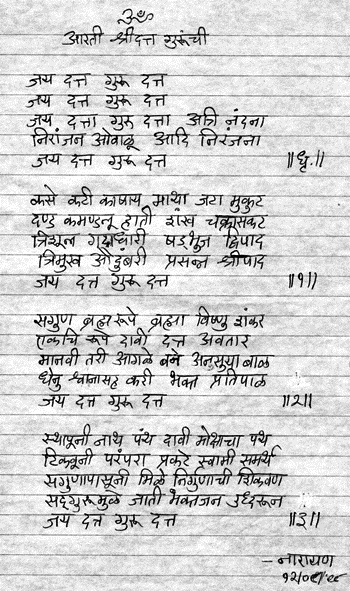 ॐ
आरती श्रीदत्त गुरूंची
जय दत्त गुरू दत्त
जय दत्त गुरू दत्त
जय दत्ता गुरु दत्ता अत्रि नंदना
निरांजन ओवाळू आदि निरंजना
जय दत्त गुरू दत्त ॥धृ.॥
कसे कटी काषाय माथा जटा मुकुट
दण्ड कमण्डलू हाती शंख चक्रासकट
त्रिशूल गदाधारी षड्भुज द्विपाद
त्रिमुख औदुंबरी प्रसन्न श्रीपाद
जय दत्त गुरू दत्त ॥१॥
सगुण ब्रह्मरूपे ब्रह्मा विष्णु शंकर
एकचि रूपे दावी दत्त अवतार
मानवी तरी आगळे बने अनुसुया बाळ
धेनु श्वानासह करी भक्त प्रतिपाळ
जय दत्त गुरू दत्त ॥२॥
स्थापूनी नाथ पंथ दावी मोक्षाचा पथ
टिकवूनी परंपरा प्रकटे स्वामी समर्थ
सगुणापासूनी मिळे निर्गुणाची शिकवण
सद्गुरूमुळे जाती भक्तजन उध्दरून
जय दत्त गुरू दत्त ॥३॥
– नारायण